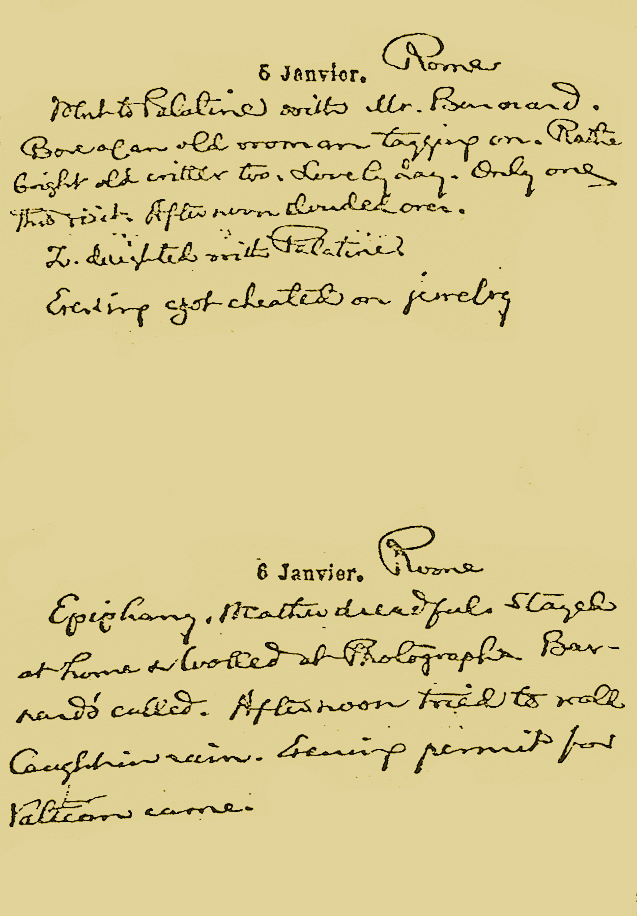 5 Janvier. Rome
Went to Palatine with Mr. Barnard.
Bore of an old woman tagging on. Rather
bright old critter too. Lovely day. Only one
this visit. Afternoon clouded over.
L. delighted with Palatine
Evening got cheated on jewelry
6 Janvier. Rome
Epiphany. Weather dreadful. Stayed
at home & looked at Photographs. Bar-
nards called. Afternoon tried to walk
Caught in rain. Evening permit for
Vatican came.